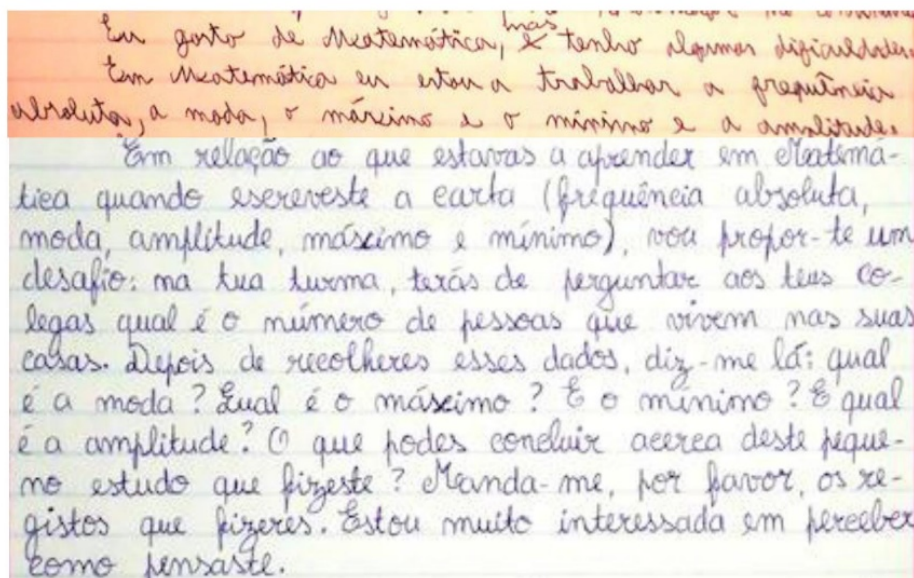 Eu gosto de Matemática, mas tenho algumas dificuldades.
Em Matemática eu estou a trabalhar a frequência
absoluta, a moda, o máximo e o mínimo e a amplitude.
Em relação ao que estavas a aprender em Matemá-
tica quando escreveste a carta (frequência absoluta,
moda, amplitude, máximo e mínimo), vou propor-te um
desafio: na tua turma, terás de perguntar aos teus co-
legas qual é o número de pessoas que vivem nas suas
casas. Depois de recolheres esses dados, diz-me lá: qual
é a moda? Qual é o máximo? E o mínimo? E qual
é a amplitude? O que podes concluir acerca deste peque-
no estudo que fizeste? Manda-me, por favor, os re-
gistos que fizeres. Estou muito interessada em perceber
como pensaste.